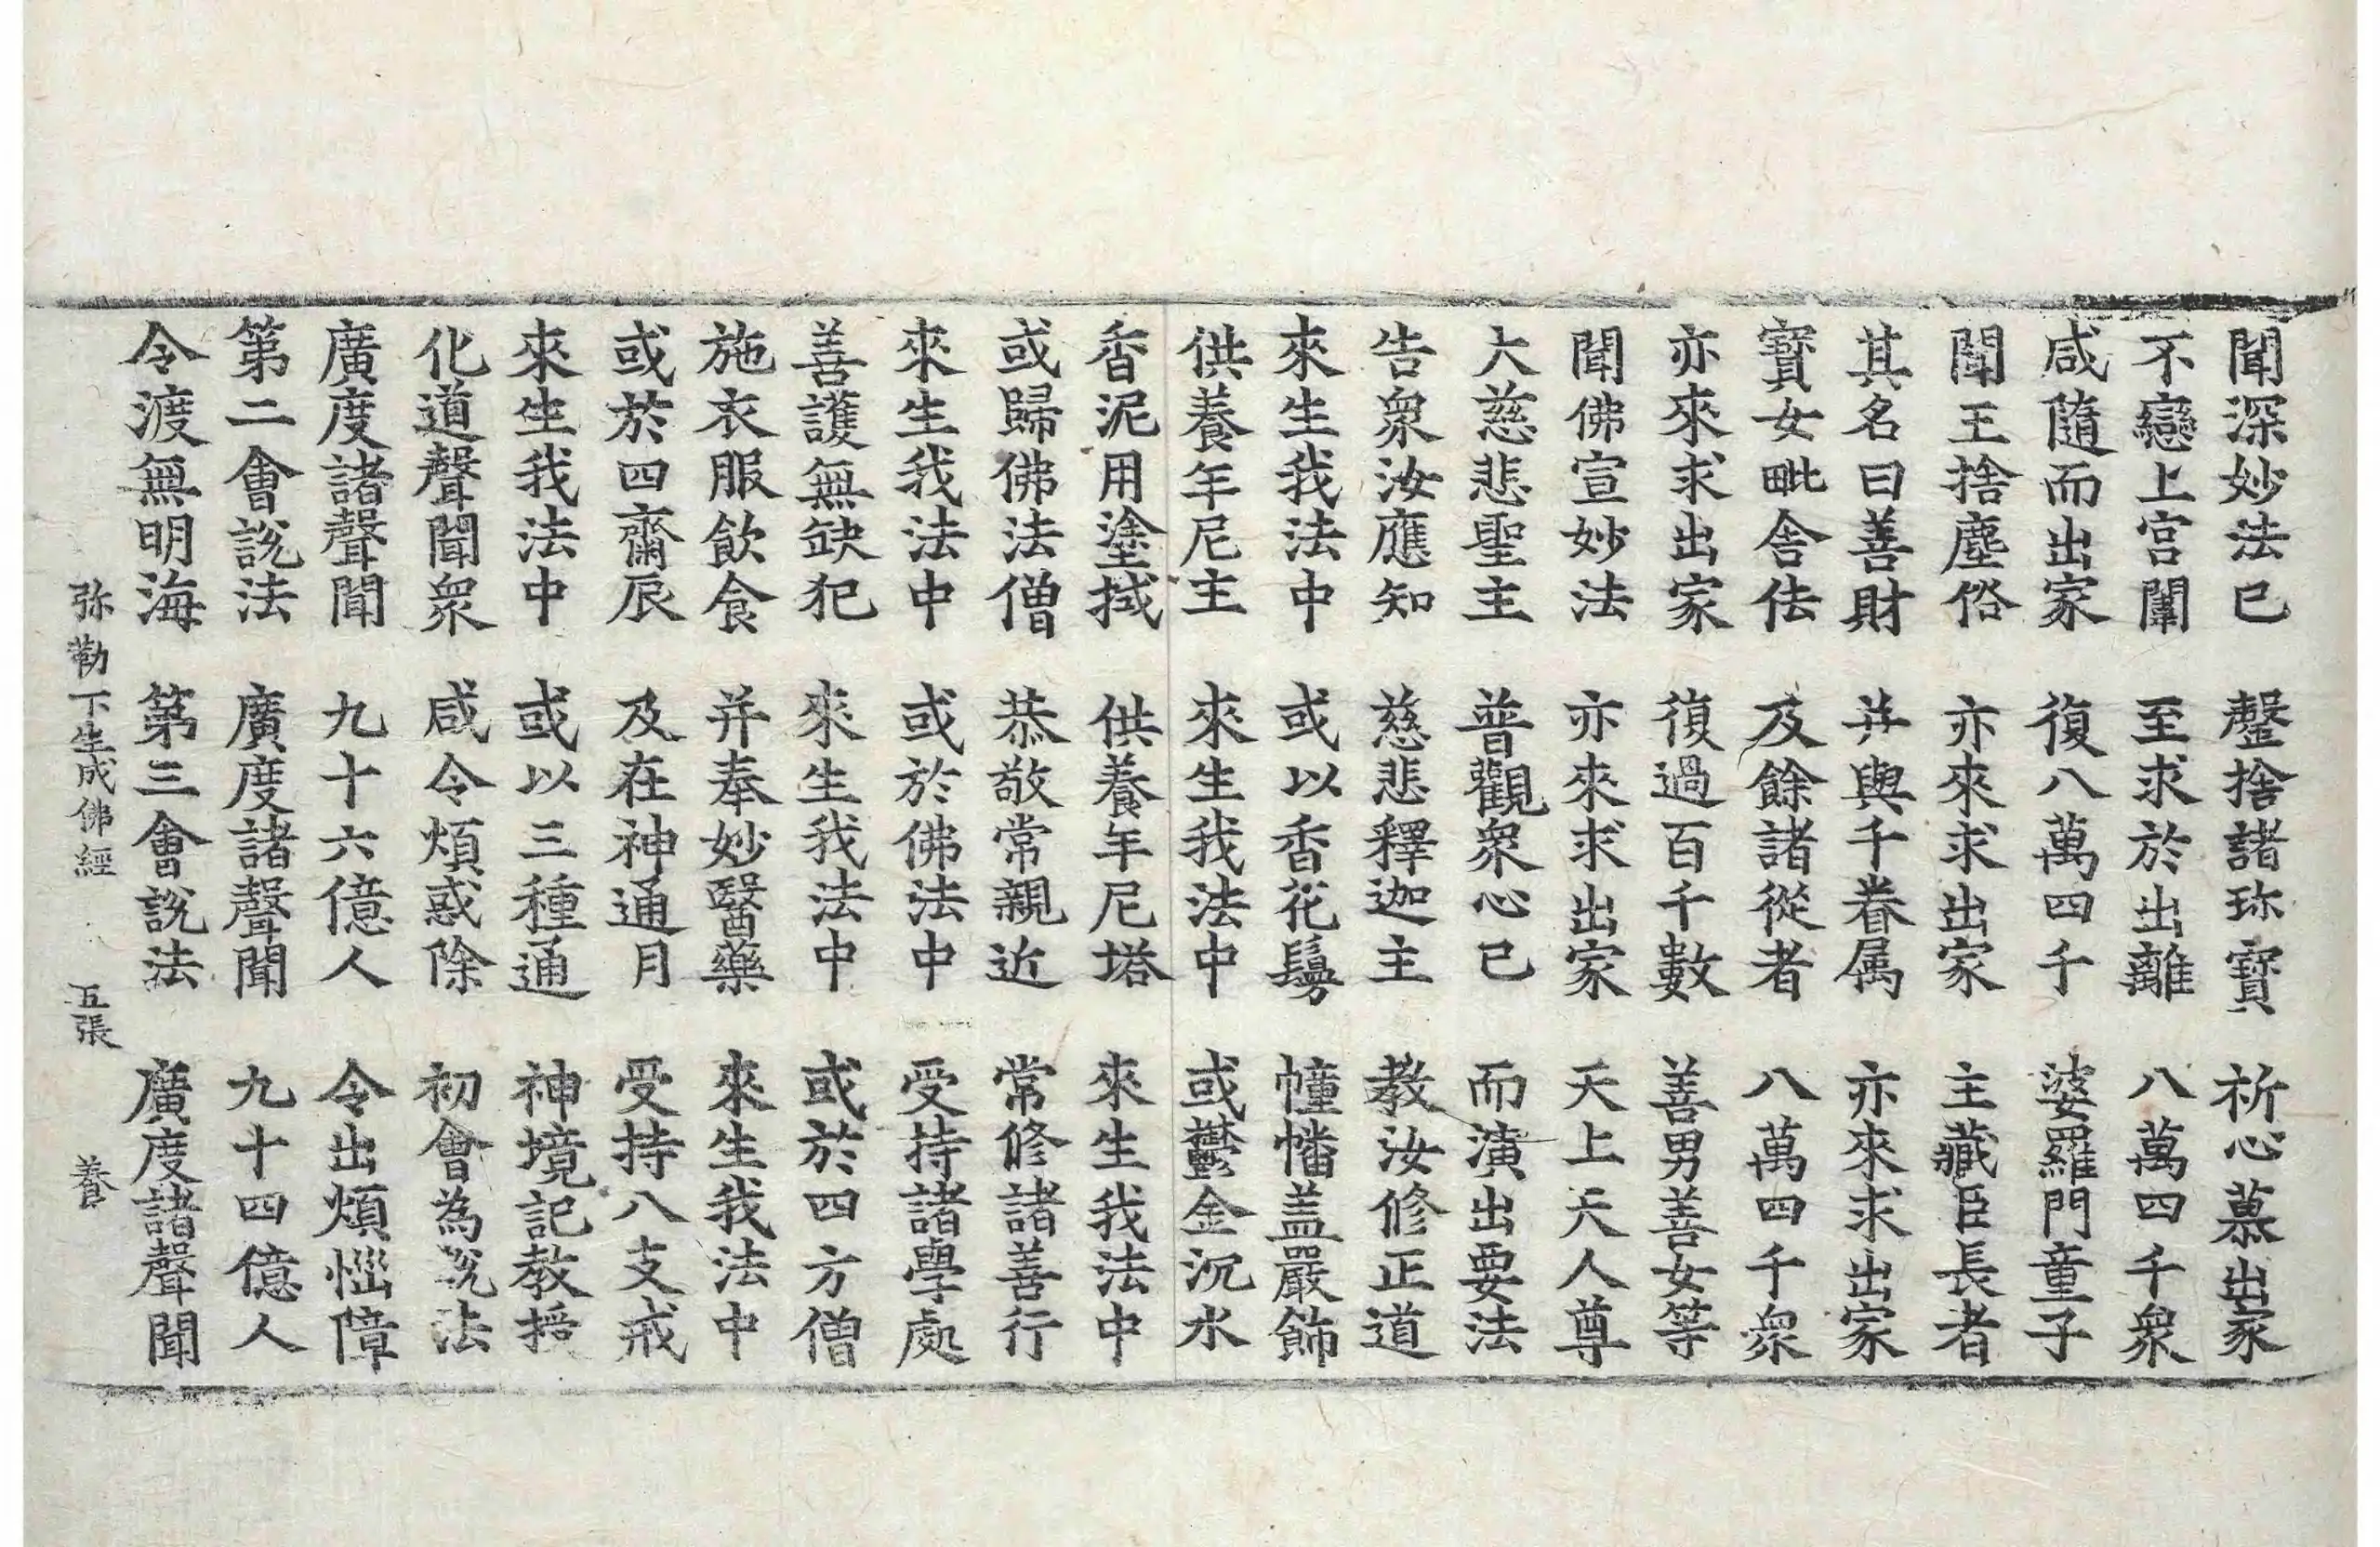 聞深妙法已　罄捨諸珎寶　祈心慕出家
不戀上宮闈　至求於出離　八萬四千衆
咸隨而出家　復八萬四千　婆羅門童子
聞王捨塵俗　亦來求出家　主藏臣長者
其名曰善財　并與千眷属　亦來求出家
寶女毗舍佉　及餘諸從者　八萬四千衆
亦來求出家　復過百千數　善男善女等
聞佛宣妙法　亦來求出家　天上天人尊
大慈悲聖主　普觀衆心已　而演出要法
告衆汝應知　慈悲釋迦主　教汝修正道
來生我法中　或以香花鬘　幢幡盖嚴飾
供養牟尼主　來生我法中　或鬱金沉水
香泥用塗拭　供養牟尼塔　來生我法中
或歸佛法僧　恭敬常親近　常修諸善行
來生我法中　或於佛法中　受持諸學處
善護無缺犯　來生我法中　或於四方僧
施衣服飲食　并奉妙醫藥　來生我法中
或於四齋辰　及在神通月　受持八支戒
來生我法中　或以三種通　神境記教授
化道聲聞衆　咸令煩惑除　初會為說法
廣度諸聲聞　九十六億人　令出煩惱障
第二會說法　廣度諸聲聞　九十四億人
令渡無明海　第三會說法　廣度諸聲聞
弥勒下生成佛經　五張　養